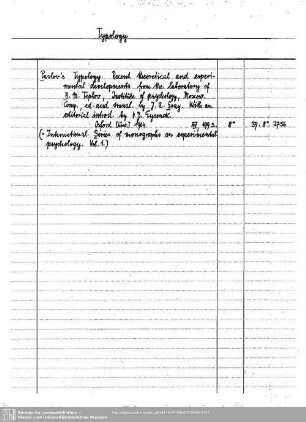 Typology
Pavlov's Typology. Recent theoretical and experi-
mental developments from the laboratory of
B. M. Teplov, Institute of psychology, Moscow.
Comp., ed. and transl. by J. A. Gray. With an
editorial introd. by H. J. Eysenck.
Oxford (usw.) 1964. XV, 499 S. 8° 59. 8° 2756
(= International Series of monographs on experimental
psychology. Vol. 1.)
Sächsische Landesbibliothek -
Staats- und Universitätsbibliothek Dresden